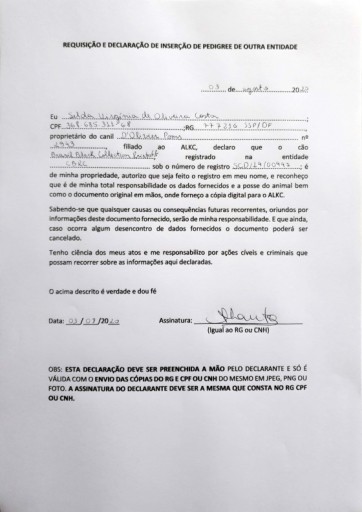 REQUISIÇÃO E DECLARAÇÃO DE INSERÇÃO DE PEDIGREE DE OUTRA ENTIDADE
03 de agosto 20
Eu Virgínia de Oliveira Costa
CPF ;RG SSP/DF,
proprietário do canil D'Olivers Poms nº
2943, filiado ao ALKC, declaro que o cão
Brasil Black Collection registrado na entidade
CBRC sob o número de registro ; é
de minha propriedade, autorizo que seja feito o registro em meu nome, e reconheço
que é de minha total responsabilidade os dados fornecidos e a posse do animal bem
como o documento original em mãos, onde forneço a cópia digital para o ALKC.
Sabendo-se que quaisquer causas ou consequências futuras recorrentes, oriundos por
informações deste documento fornecido, serão de minha responsabilidade. E que ainda,
caso ocorra algum desencontro de dados fornecidos o documento poderá ser
cancelado.
Tenho ciência dos meus atos e me responsabilizo por ações cíveis e criminais que
possam recorrer sobre as informações aqui declaradas.
O acima descrito é verdade e dou fé
Data: Assinatura:
(Igual ao RG ou CNH)
OBS: ESTA DECLARAÇÃO DEVE SER PREENCHIDA A MÃO PELO DECLARANTE E SÓ É
VÁLIDA COM O ENVIO DAS CÓPIAS DO RG E CPF OU CNH DO MESMO EM JPEG, PNG OU
FOTO. A ASSINATURA DO DECLARANTE DEVE SER A MESMA QUE CONSTA NO RG CPF
OU CNH.